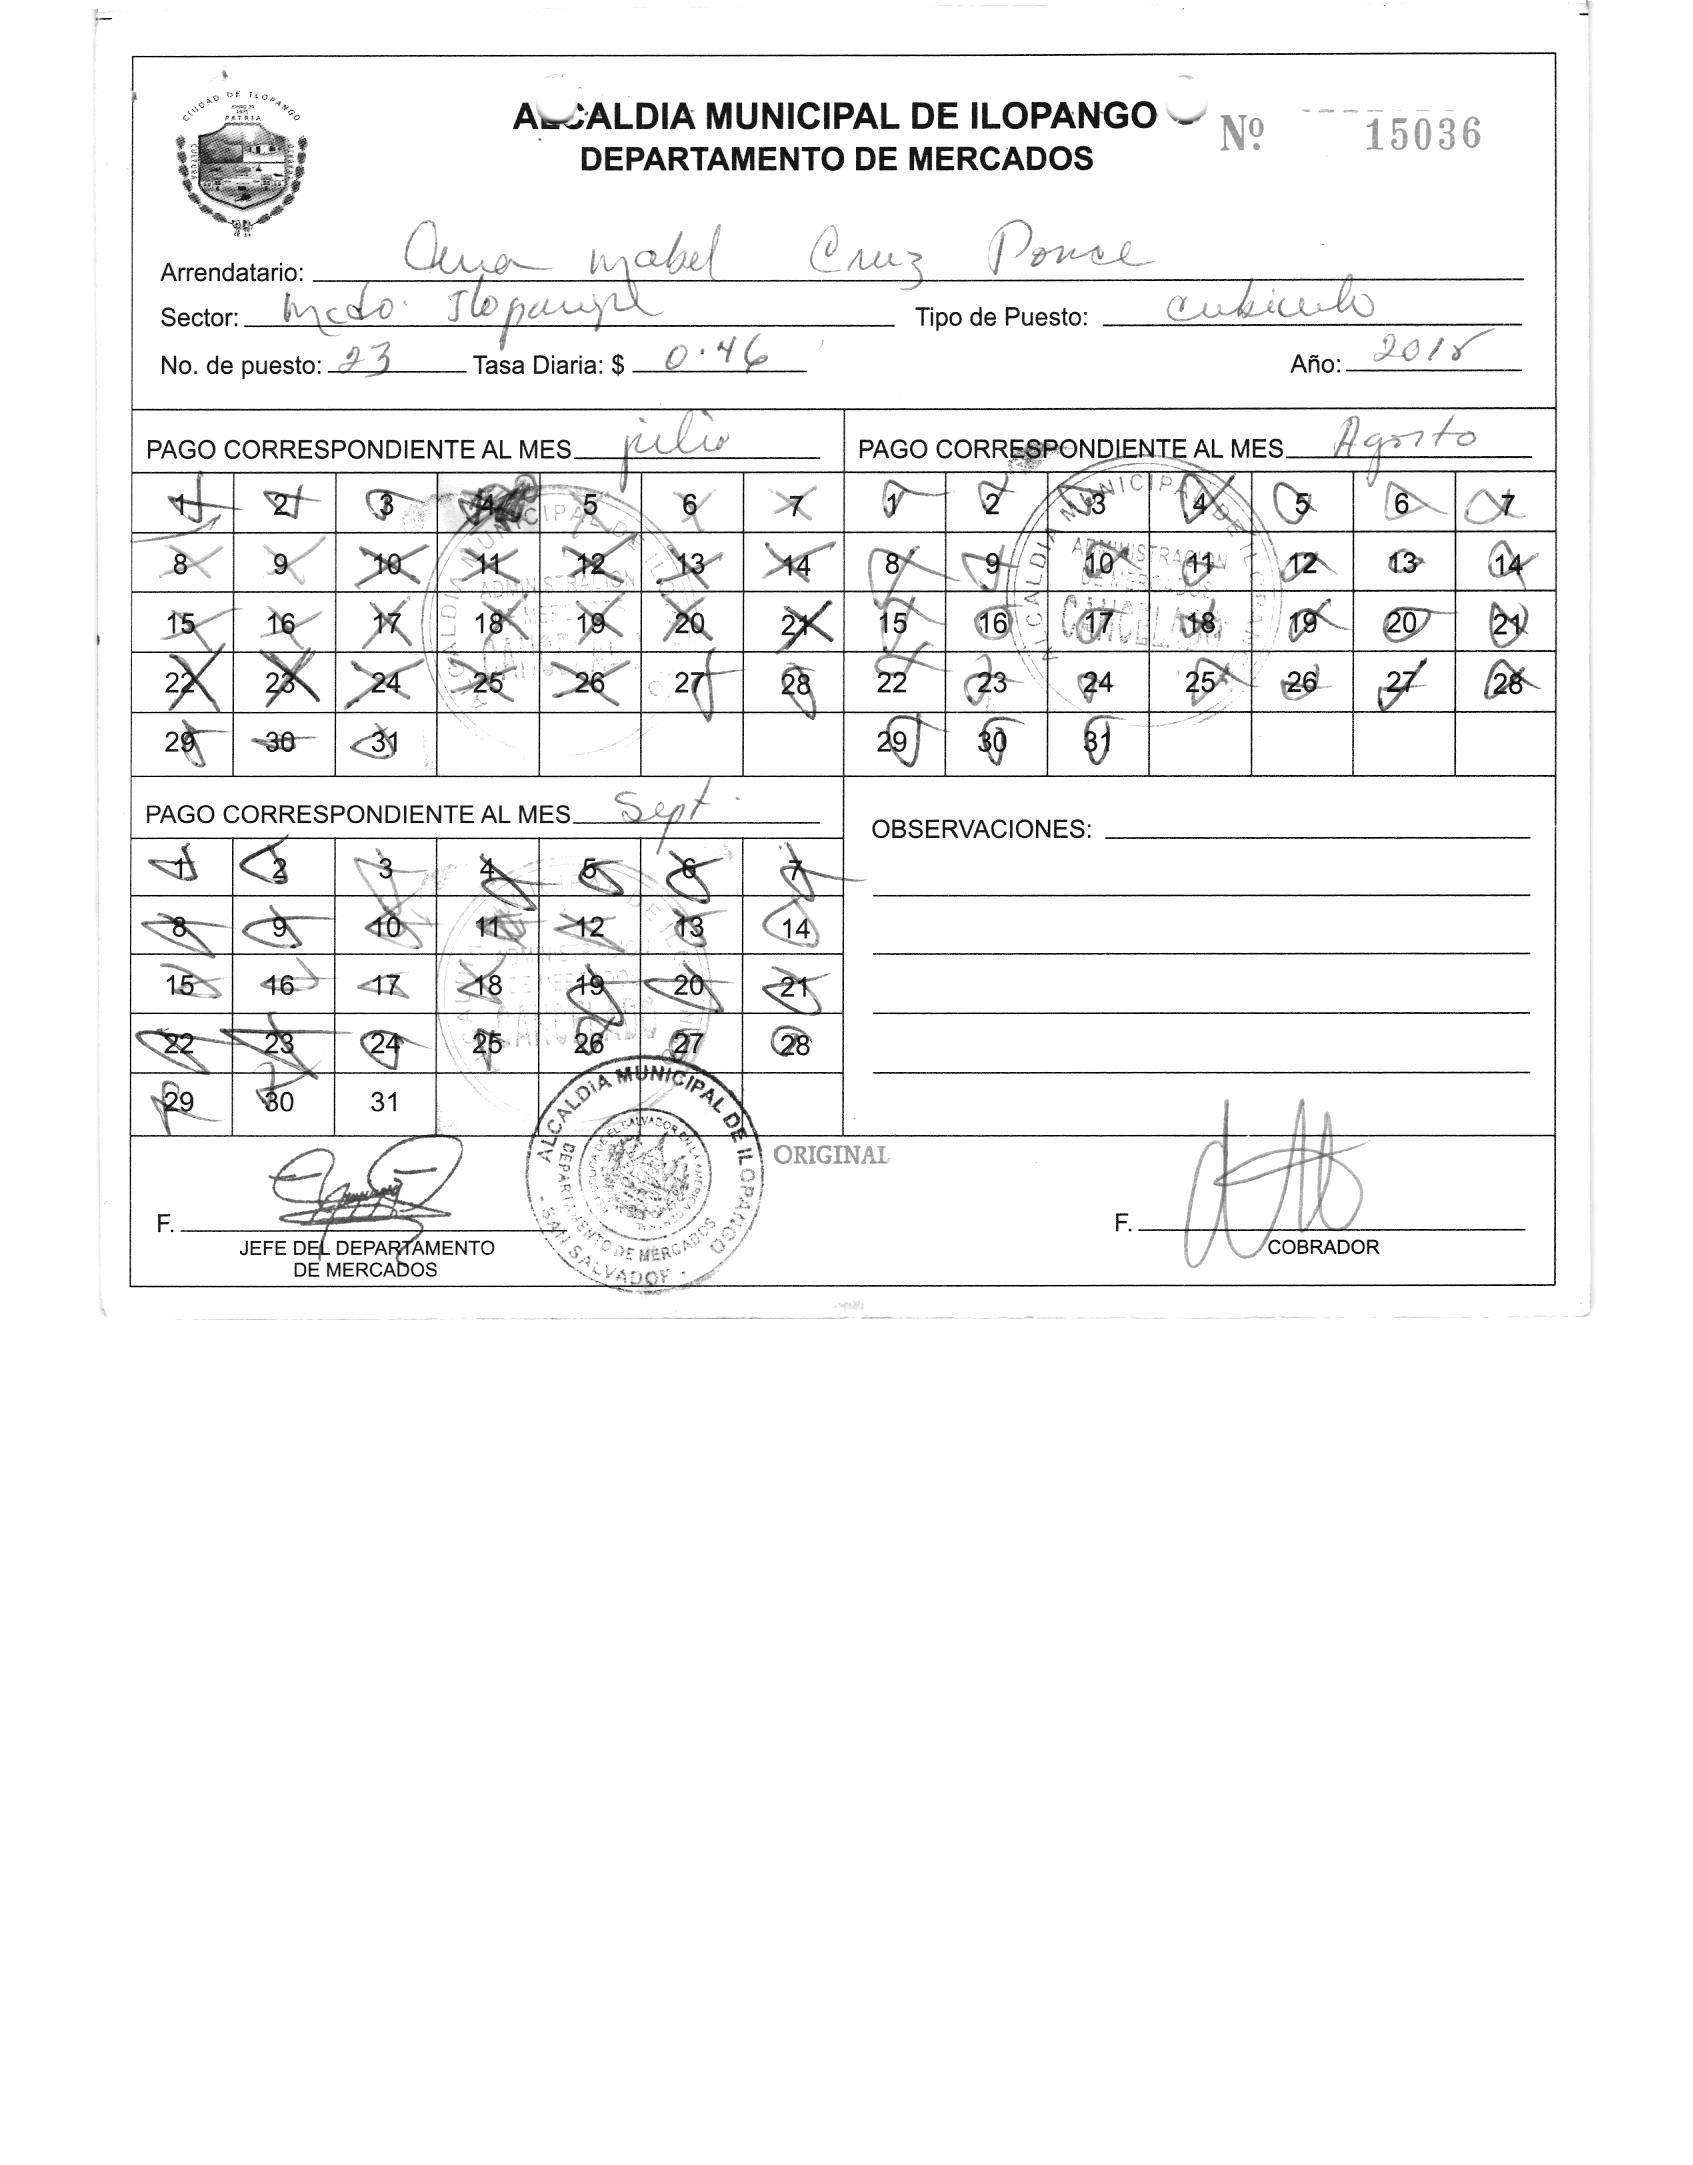 CIUDAD DE ILOPANGO
PATRIA
CULTURA
ALCALDIA MUNICIPAL DE ILOPANGO
DEPARTAMENTO DE MERCADOS
Nº 15036
Arrendatario: Ana Mabel Cruz Ponce
Sector: Mcdo. Ilopango Tipo de Puesto: cubiculo
No. de puesto: 23 Tasa Diaria: $ 0.46 Año: 2018
PAGO CORRESPONDIENTE AL MES julio
1 2 3 4 5 6 7
8 9 10 11 12 13 14
15 16 17 18 19 20 21
22 23 24 25 26 27 28
29 30 31
PAGO CORRESPONDIENTE AL MES Agosto
1 2 3 4 5 6 7
8 9 10 11 12 13 14
15 16 17 18 19 20 21
22 23 24 25 26 27 28
29 30 31
ALCALDIA MUNICIPAL DE ILOPANGO
ADMINISTRACION
DE MERCADOS
CANCELADO
PAGO CORRESPONDIENTE AL MES Sept.
1 2 3 4 5 6 7
8 9 10 11 12 13 14
15 16 17 18 19 20 21
22 23 24 25 26 27 28
29 30 31
ADMINISTRACION
DE MERCADO
CANCELADO
OBSERVACIONES:
ORIGINAL
F.
JEFE DEL DEPARTAMENTO
DE MERCADOS
ALCALDIA MUNICIPAL DE ILOPANGO
DEPARTAMENTO DE MERCADOS
- SAN SALVADOR -
F.
COBRADOR